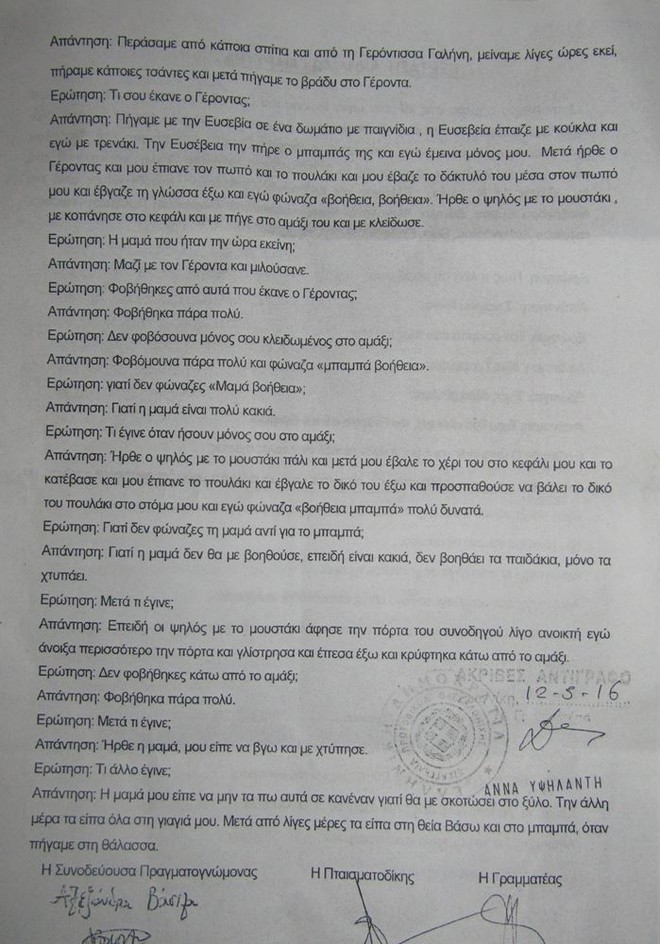 Απάντηση: Περάσαμε από κάποια σπίτια και από τη Γερόντισσα Γαλήνη, μείναμε λίγες ώρες εκεί,
πήραμε κάποιες τσάντες και μετά πήγαμε το βράδυ στο Γέροντα.
Ερώτηση: Τι σου έκανε ο Γέροντας;
Απάντηση: Πήγαμε με την Ευσεβία σε ένα δωμάτιο με παιγνίδια , η Ευσεβεία έπαιζε με κούκλα και
εγώ με τρενάκι. Την Ευσέβεια την πήρε ο μπαμπάς της και εγώ έμεινα μόνος μου. Μετά ήρθε ο
Γέροντας και μου έπιανε τον πωπό και το πουλάκι και μου έβαζε το δάκτυλό του μέσα στον πωπό
μου και έβγαζε τη γλώσσα έξω και εγώ φώναζα «βοήθεια, βοήθεια». Ήρθε ο ψηλός με το μουστάκι ,
με κοπάνησε στο κεφάλι και με πήγε στο αμάξι του και με κλείδωσε.
Ερώτηση: Η μαμά που ήταν την ώρα εκείνη;
Απάντηση: Μαζί με τον Γέροντα και μιλούσανε.
Ερώτηση: Φοβήθηκες από αυτά που έκανε ο Γέροντας;
Απάντηση: Φοβήθηκα πάρα πολύ.
Ερώτηση: Δεν φοβόσουνα μόνος σου κλειδωμένος στο αμάξι;
Απάντηση: Φοβόμουνα πάρα πολύ και φώναζα «μπαμπά βοήθεια».
Ερώτηση: γιατί δεν φώναζες «Μαμά βοήθεια»;
Απάντηση: Γιατί η μαμά είναι πολύ κακιά.
Ερώτηση: Τι έγινε όταν ήσουν μόνος σου στο αμάξι;
Απάντηση: Ήρθε ο ψηλός με το μουστάκι πάλι και μετά μου έβαλε το χέρι του στο κεφάλι μου και το
κατέβασε και μου έπιανε το πουλάκι και έβγαλε το δικό του έξω και προσπαθούσε να βάλει το δικό
του πουλάκι στο στόμα μου και εγώ φώναζα «βοήθεια μπαμπά» πολύ δυνατά.
Ερώτηση: Γιατί δεν φώναζες τη μαμά αντί για το μπαμπά;
Απάντηση: Γιατί η μαμά δεν θα με βοηθούσε, επειδή είναι κακιά, δεν βοηθάει τα παιδάκια, μόνο τα
χτυπάει.
Ερώτηση: Μετά τι έγινε;
Απάντηση: Επειδή οι ψηλός με το μουστάκι άφησε την πόρτα του συνοδηγού λίγο ανοικτή εγώ
άνοιξα περισσότερο την πόρτα και γλίστρησα και έπεσα έξω και κρύφτηκα κάτω από το αμάξι.
Ερώτηση: Δεν φοβήθηκες κάτω από το αμάξι;
ΑΚΡΙΒΕΣ ΑΝΤΙΓΡΑΦΟ
12-5-16
Απάντηση: Φοβήθηκα πάρα πολύ.
Ερώτηση: Μετά τι έγινε;
Απάντηση: Ήρθε η μαμά, μου είπε να βγω και με χτύπησε.
Ερώτηση: Τι άλλο έγινε;
ΑΝΝΑ ΥΨΗΛΑΝΤΗ
Απάντηση: Η μαμά μου είπε να μην τα πω αυτά σε κανέναν γιατί θα με σκοτώσει στο ξύλο. Την άλλη
μέρα τα είπα όλα στη γιαγιά μου. Μετά από λίγες μέρες τα είπα στη θεία Βάσω και στο μπαμπά, όταν
πήγαμε στη θάλασσα.
Η Συνοδεύουσα Πραγματογνώμονας Η Πταισματοδίκης Η Γραμματέας